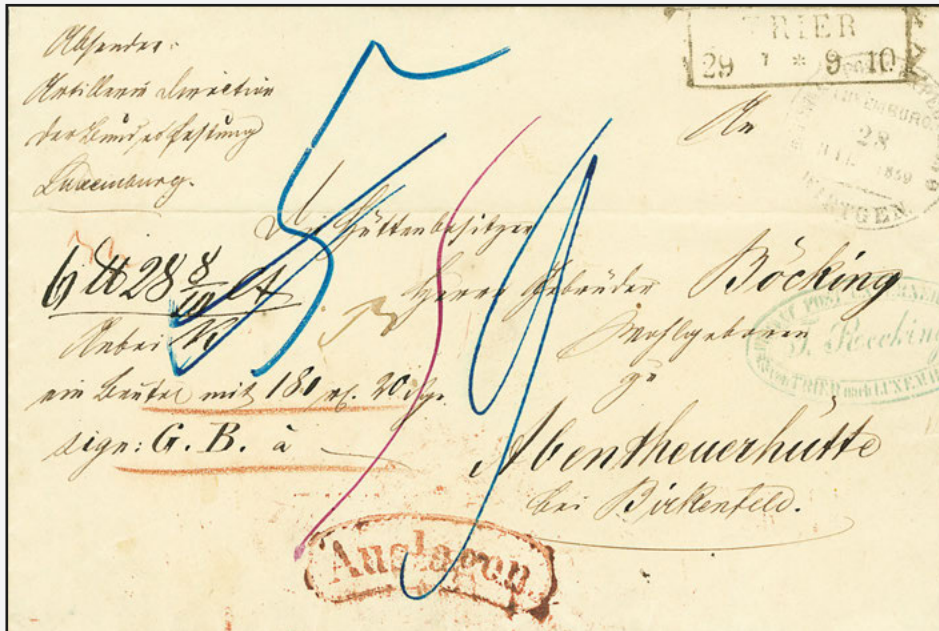 Absender:
Artillerie Direction
der Bundesfestung
Luxemburg.
TRIER
29 1 * 9-10
LUXEMBURG
28
1859
An
Die Hüttenbesitzer
Herrn Gebrüder Böcking
Wohlgeboren
zu
Abentheuerhütte
bei Birkenfeld.
6 ℔ 28 8/10
Anbei
ein Beutel mit 180 20
sign: G. B. à
5
J. Recking
TRIER nach LUXEMB
Auslagen